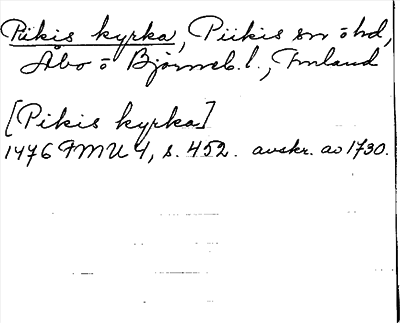 Piikis kyrka, Piikis sn o hd,
Åbo o Björneb. l., Finland
[Pikis kyrka]
1476 FMU 4, s. 452. avskr. av 1730.